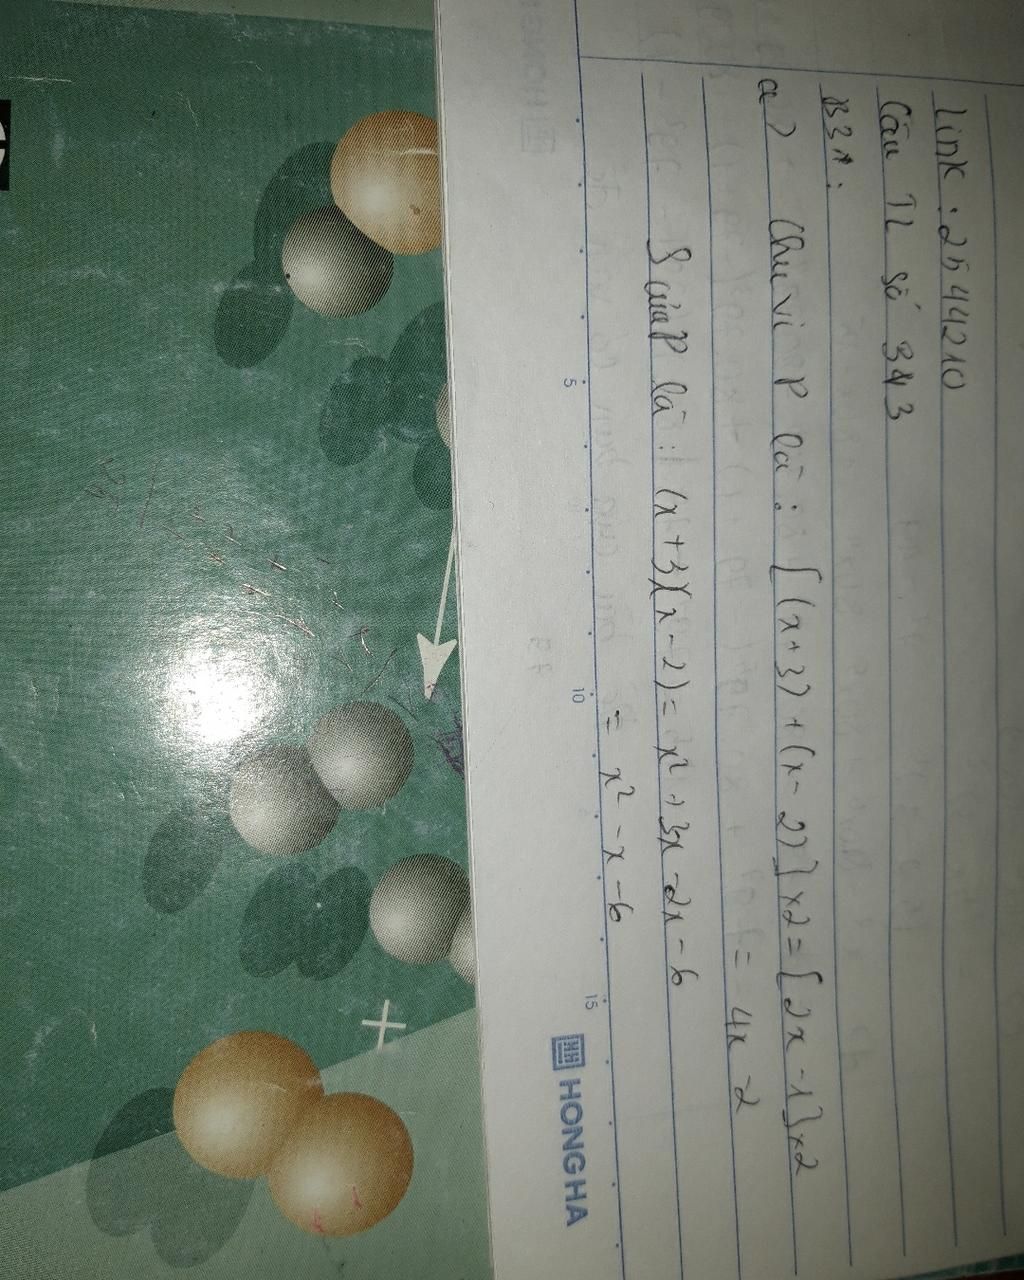 Link : 2544210
Câu 12 số 343
B31:
a) Chu vi P là : [(x+3) + (x-2)] x2 = [2x -1] x2
= 4x 2
S của P là : (x+3)(x-2) = x² + 3x - 2x - 6
= x² - x - 6
5 10 15
HONG HA